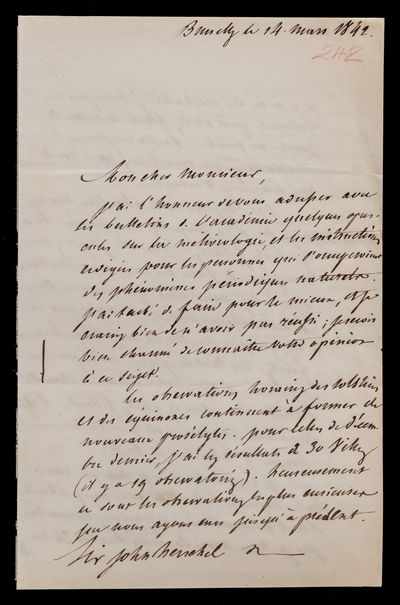 Bruxelles le 14 mars 1842.
242
Mon cher monsieur,
j'ai l'honneur de vous adresser avec
les bulletins de l'académie quelques opus-
cules sur la météorologie, et les instructions
rédigées pour les personnes qui s'occuperaient
des phénomènes périodiques naturels.
j'ai taché de faire pour le mieux, et je
crains bien de n'avoir pas réussi; je serais
bien charmé de connaître votre opinion
à ce sujet.
les observations horaires des solstices
et des équinoxes continuent à former de
nouveaux prosélytes. pour celles de décem-
bre dernier, j'ai les résultats de 30 villes
(il y a 19 observatoires). heureusement
ce sont les observations les plus curieuses
que nous ayons eues jusqu'à présent.
Sir John Herschel